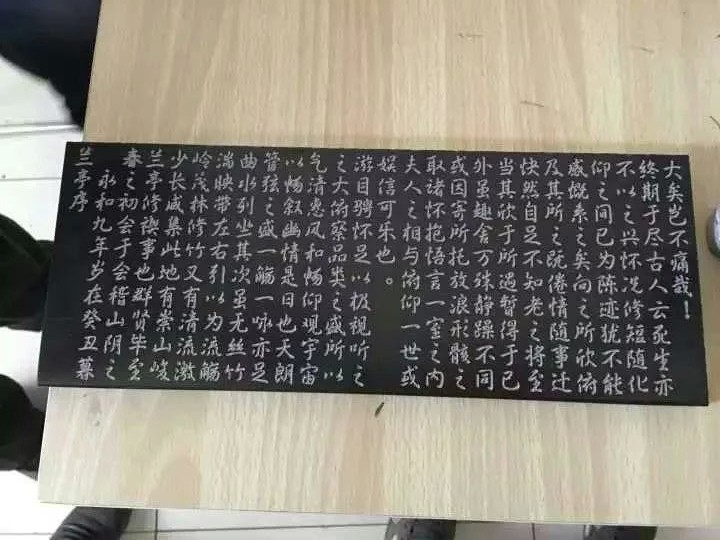 兰亭序
永和九年岁在癸丑暮
春之初会于会稽山阴之
兰亭修禊事也群贤毕至
少长咸集此地有崇山峻
岭茂林修竹又有清流激
湍映带左右引以为流觞
曲水列坐其次虽无丝竹
管弦之盛一觞一咏亦足
以畅叙幽情是日也天朗
气清惠风和畅仰观宇宙
之大俯察品类之盛所以
游目骋怀足以极视听之
娱信可乐也。
夫人之相与俯仰一世或
取诸怀抱悟言一室之内
或因寄所托放浪形骸之
外虽趣舍万殊静躁不同
当其欣于所遇暂得于己
快然自足不知老之将至
及其所之既倦情随事迁
感慨系之矣向之所欣俯
仰之间已为陈迹犹不能
不以之兴怀况修短随化
终期于尽古人云死生亦
大矣岂不痛哉！